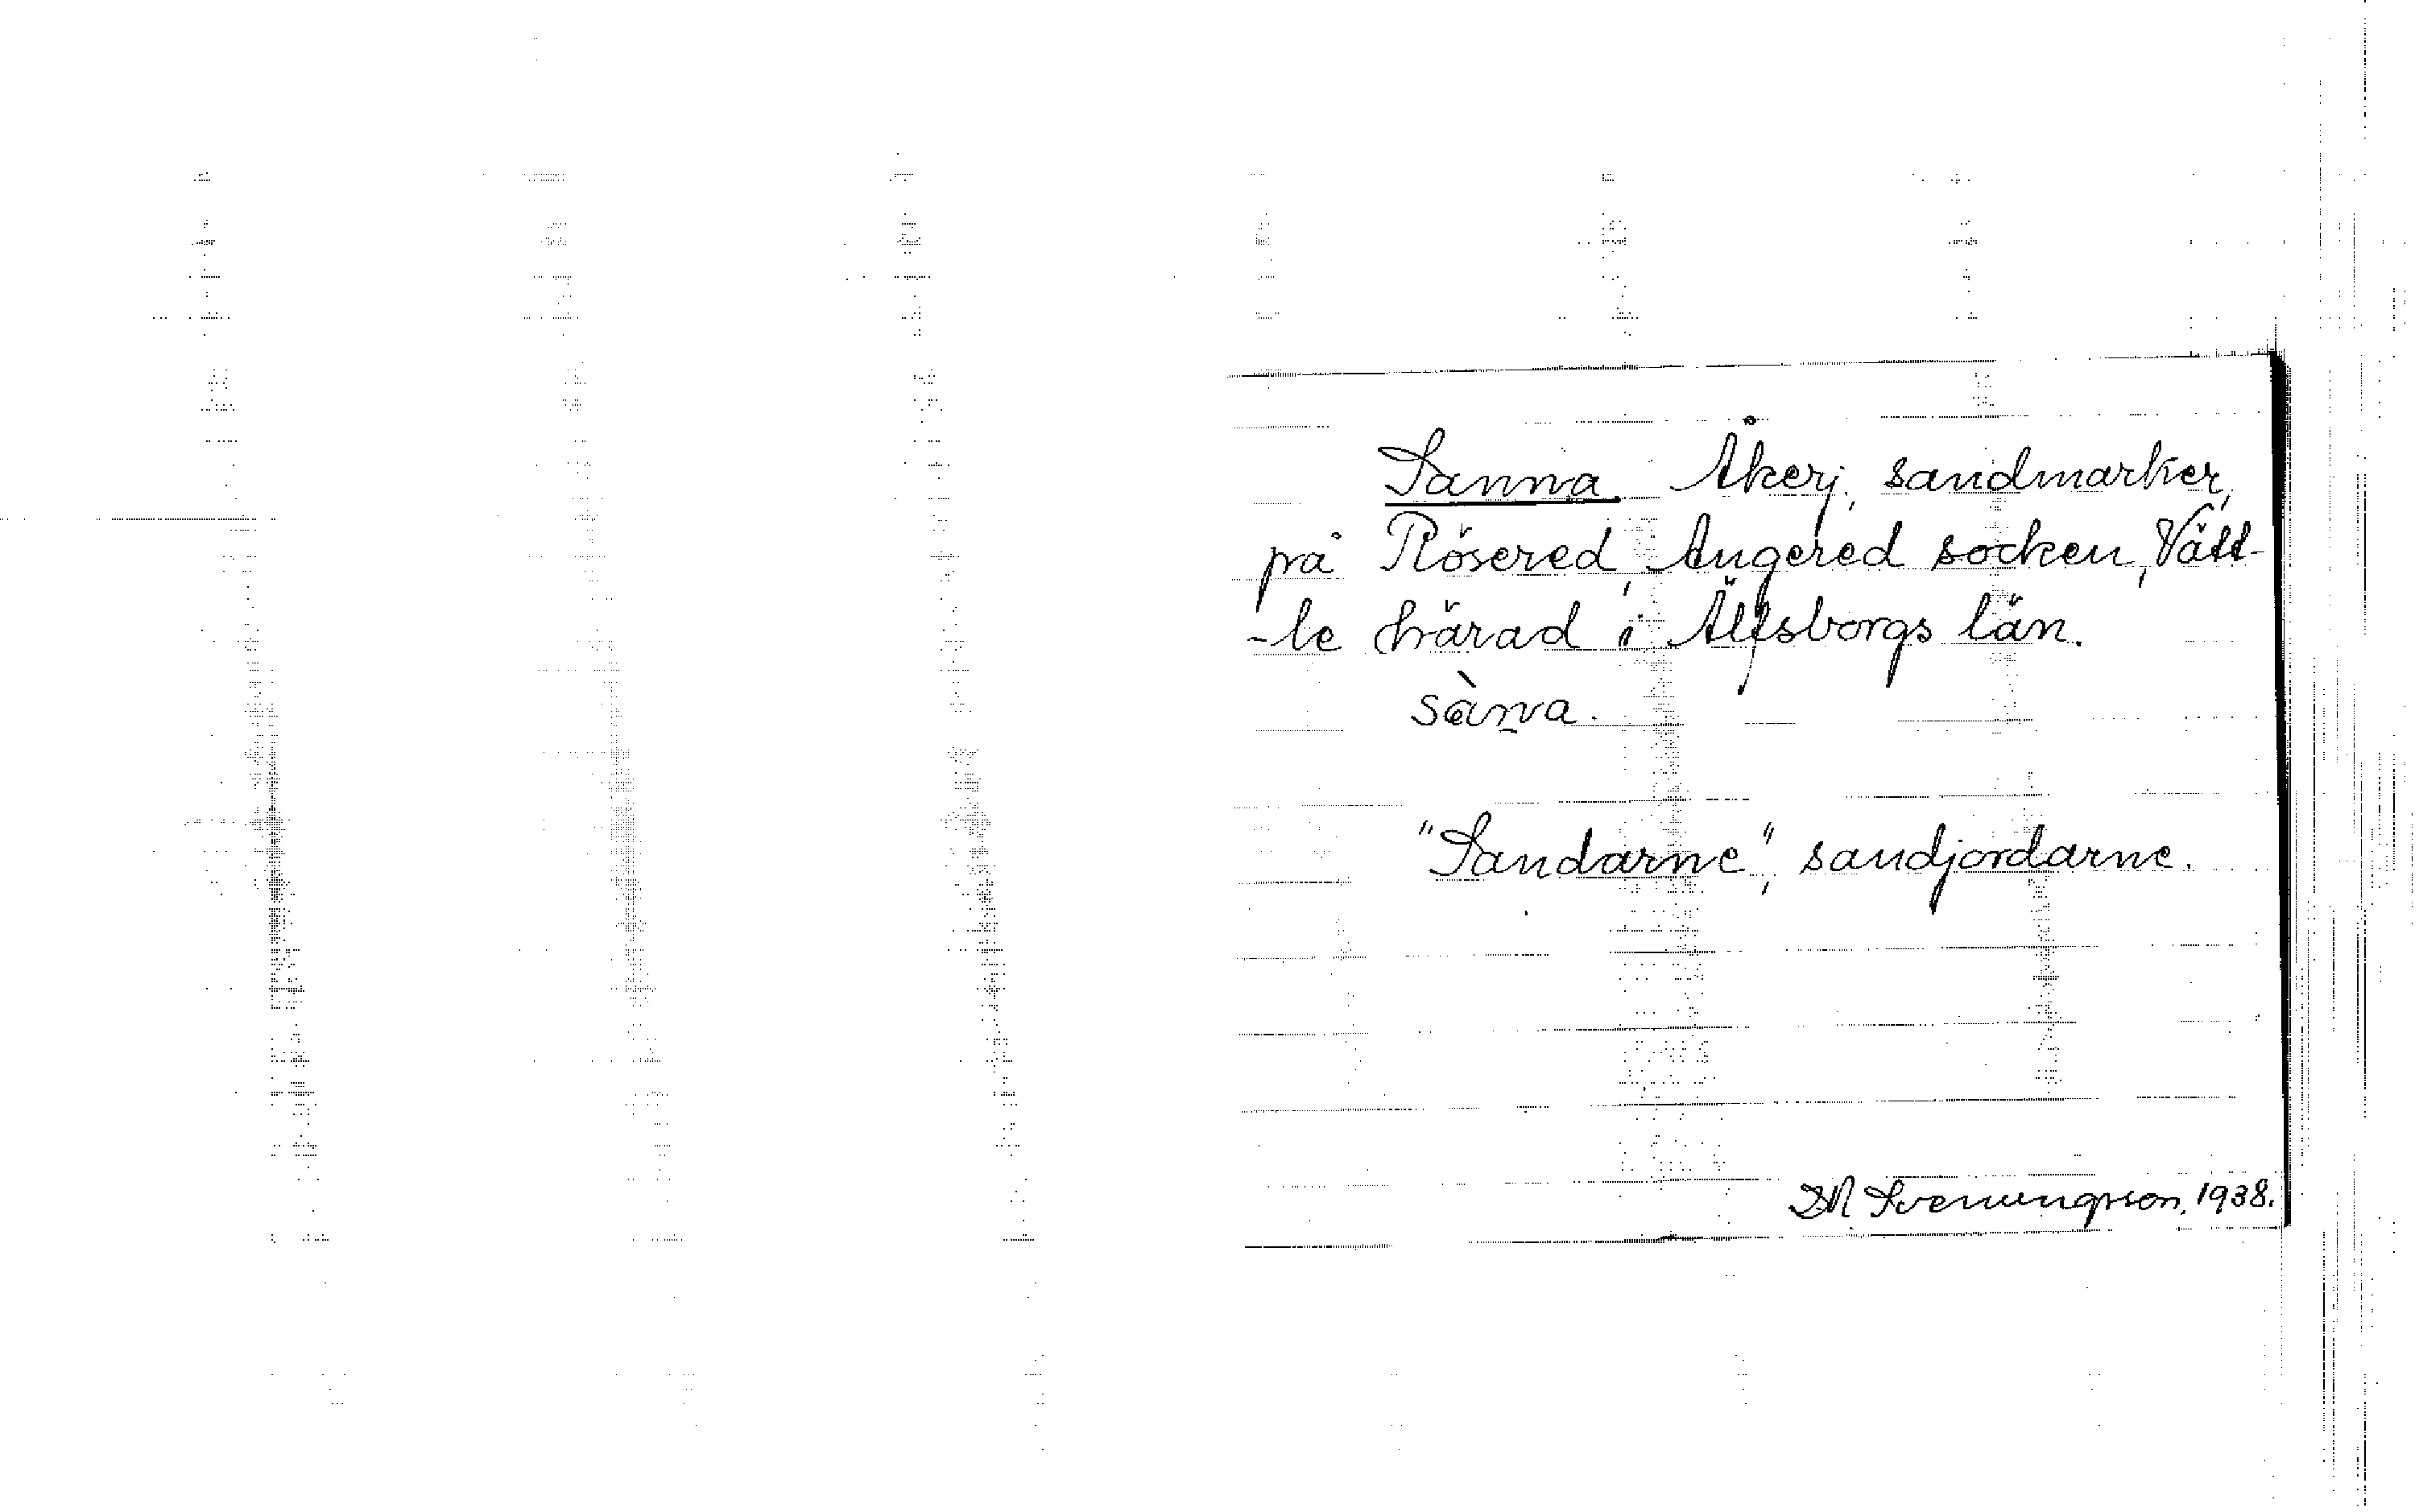 Sanna. Åkerj., sandmarker,
på Rösered, Angered socken, Vätt-
-le härad i Älfsborgs län.
sàn̰a.
"Sandarne", sandjordarne.
DN Svenungsson, 1938.